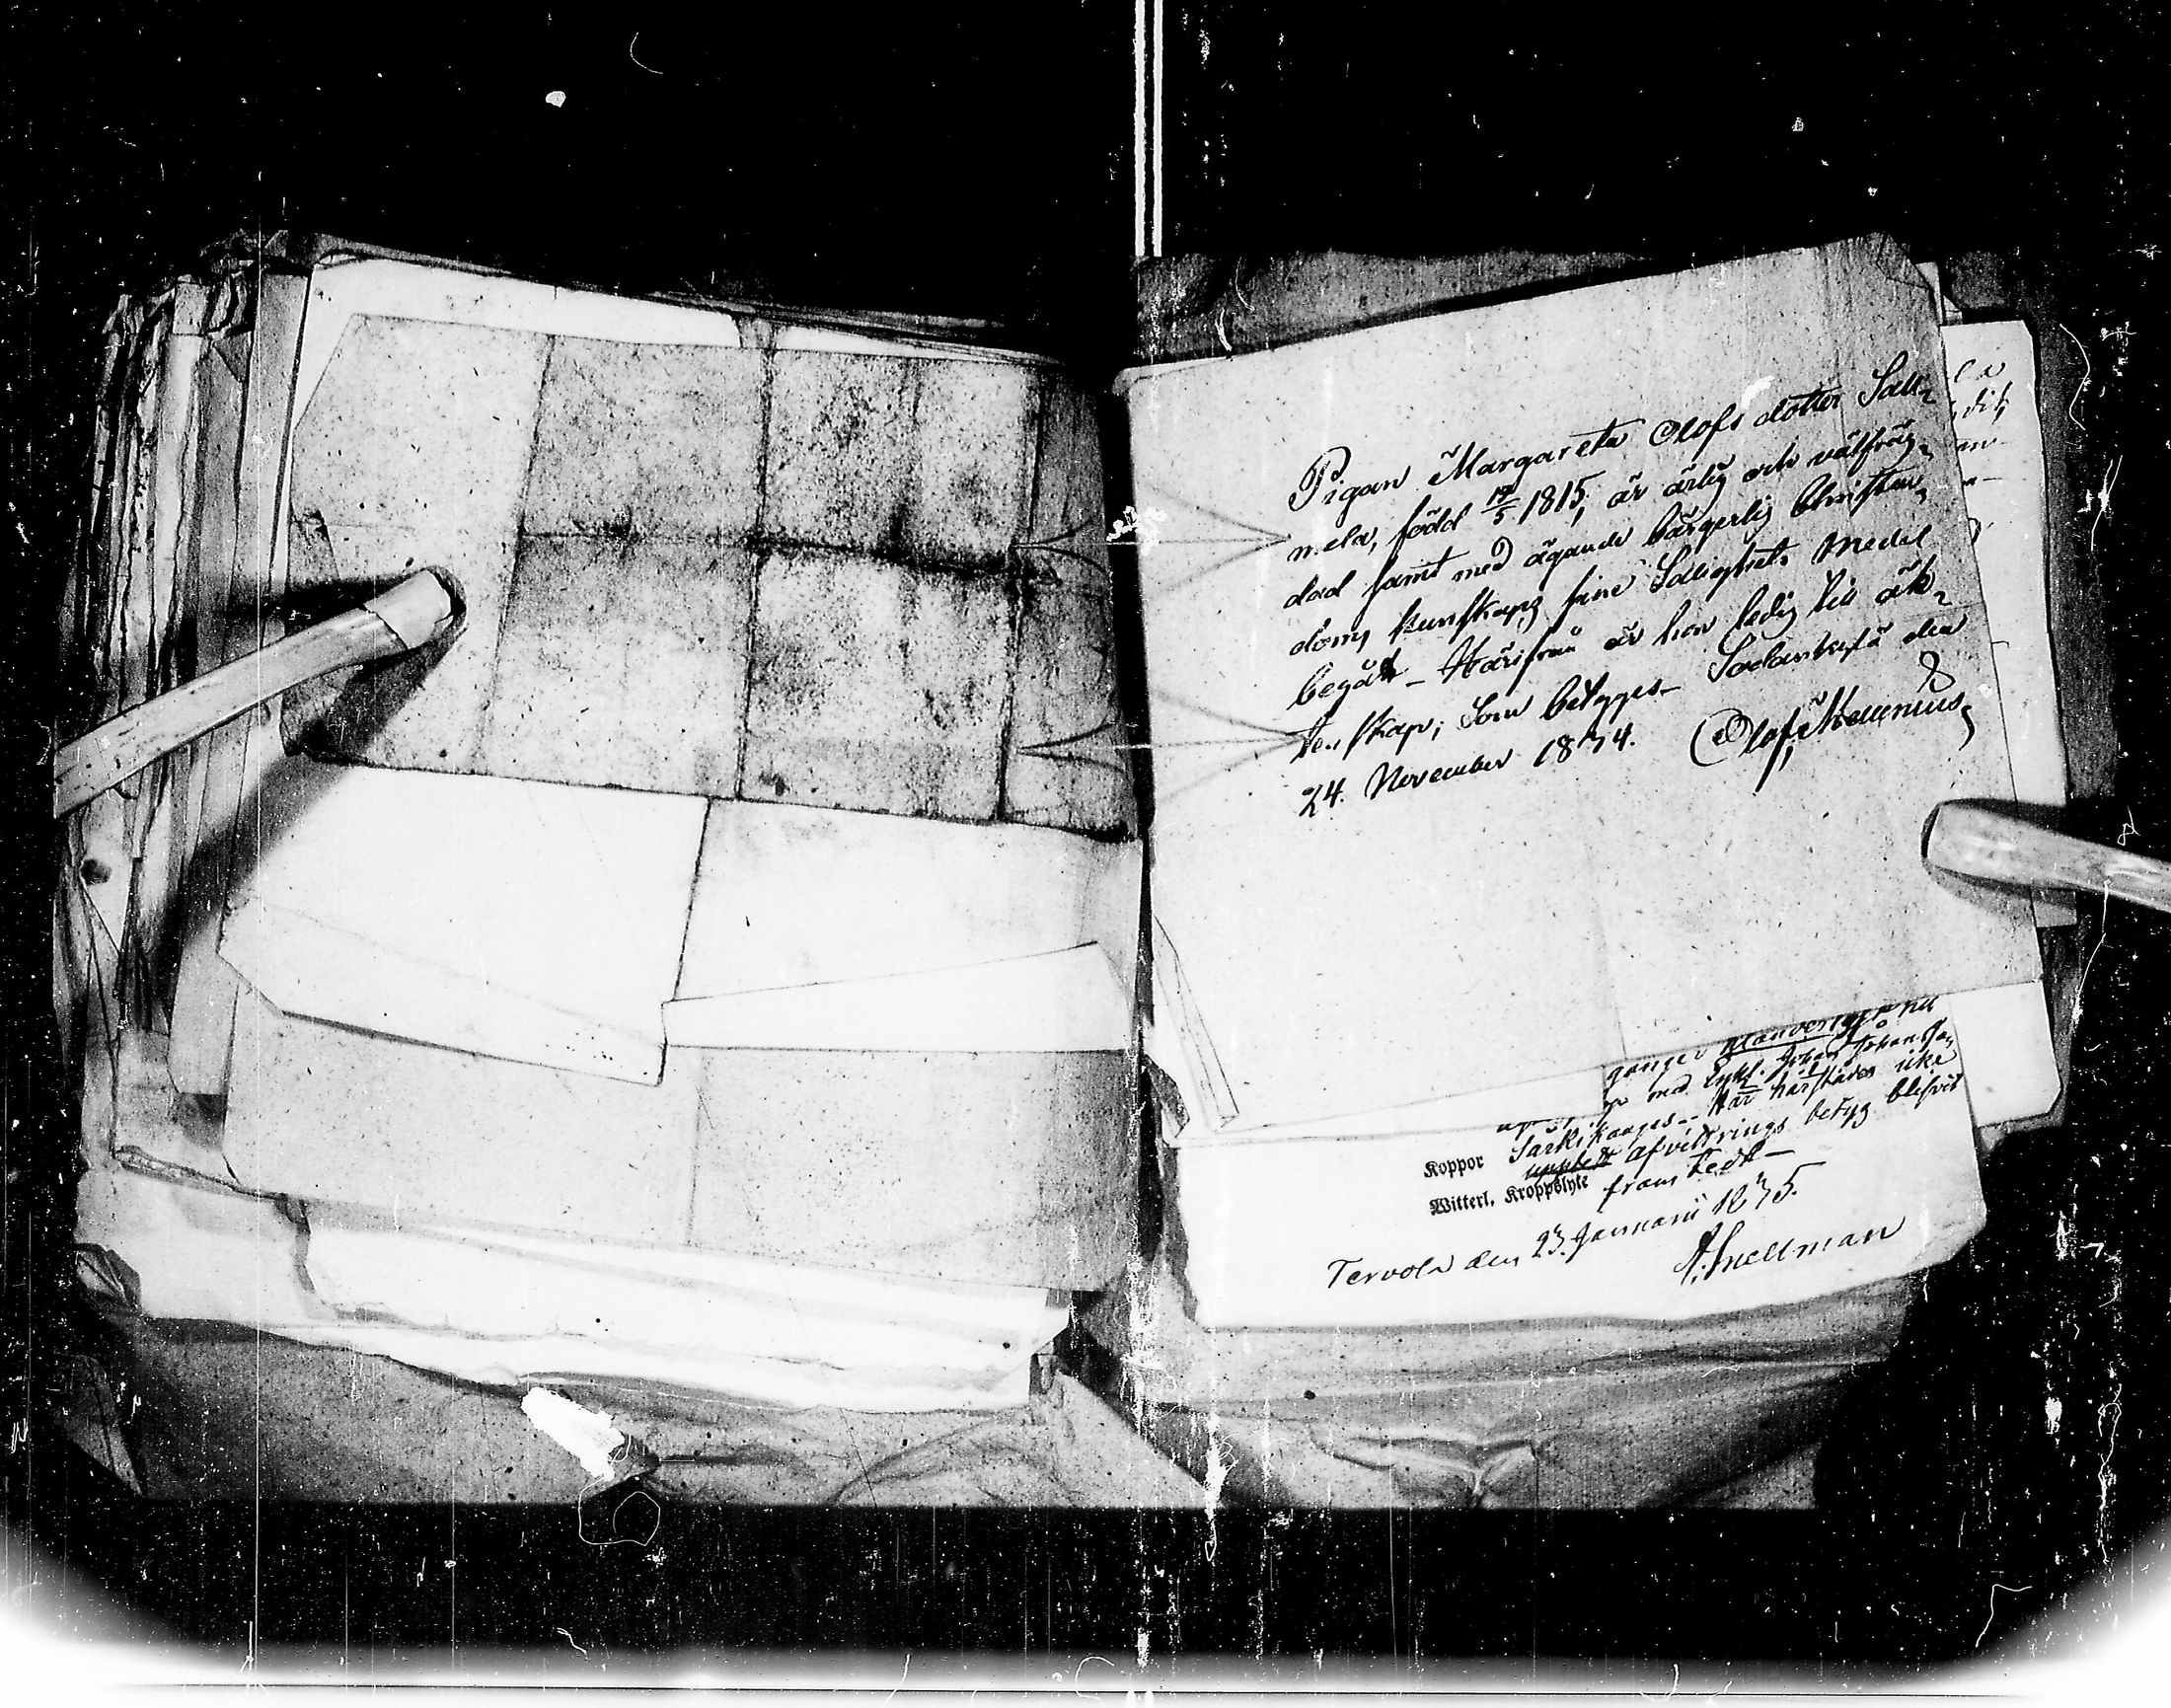 Pigan Margareta Olofs dotter Sall-
mela, född 19/5 1815, är ärlig och välfräg-
dad samt med ägande bårgerlig Christen-
doms kunskap, sine Salighets Medel
begådt - Härifrån är hon ledig till äk-
tenskap; Som betyges - Sodankylä den
24. November 1874. Olof Mellenius
gånger
med Enkl. Johan Johansson
Särkikangas - Har härstädes icke
Koppor upptedt afvittrings betyg blifvit
Witterl. Kroppslyte framtedt -
Tervola den 23. Januari 1875.
A. Snellman